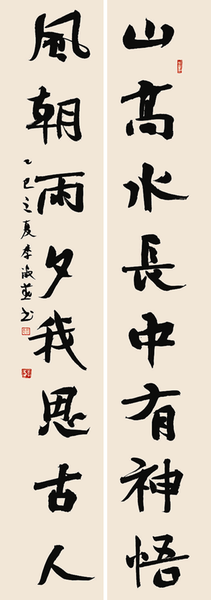 山高水長中有神悟
風朝雨夕我思古人
乙巳之夏李淑燕书